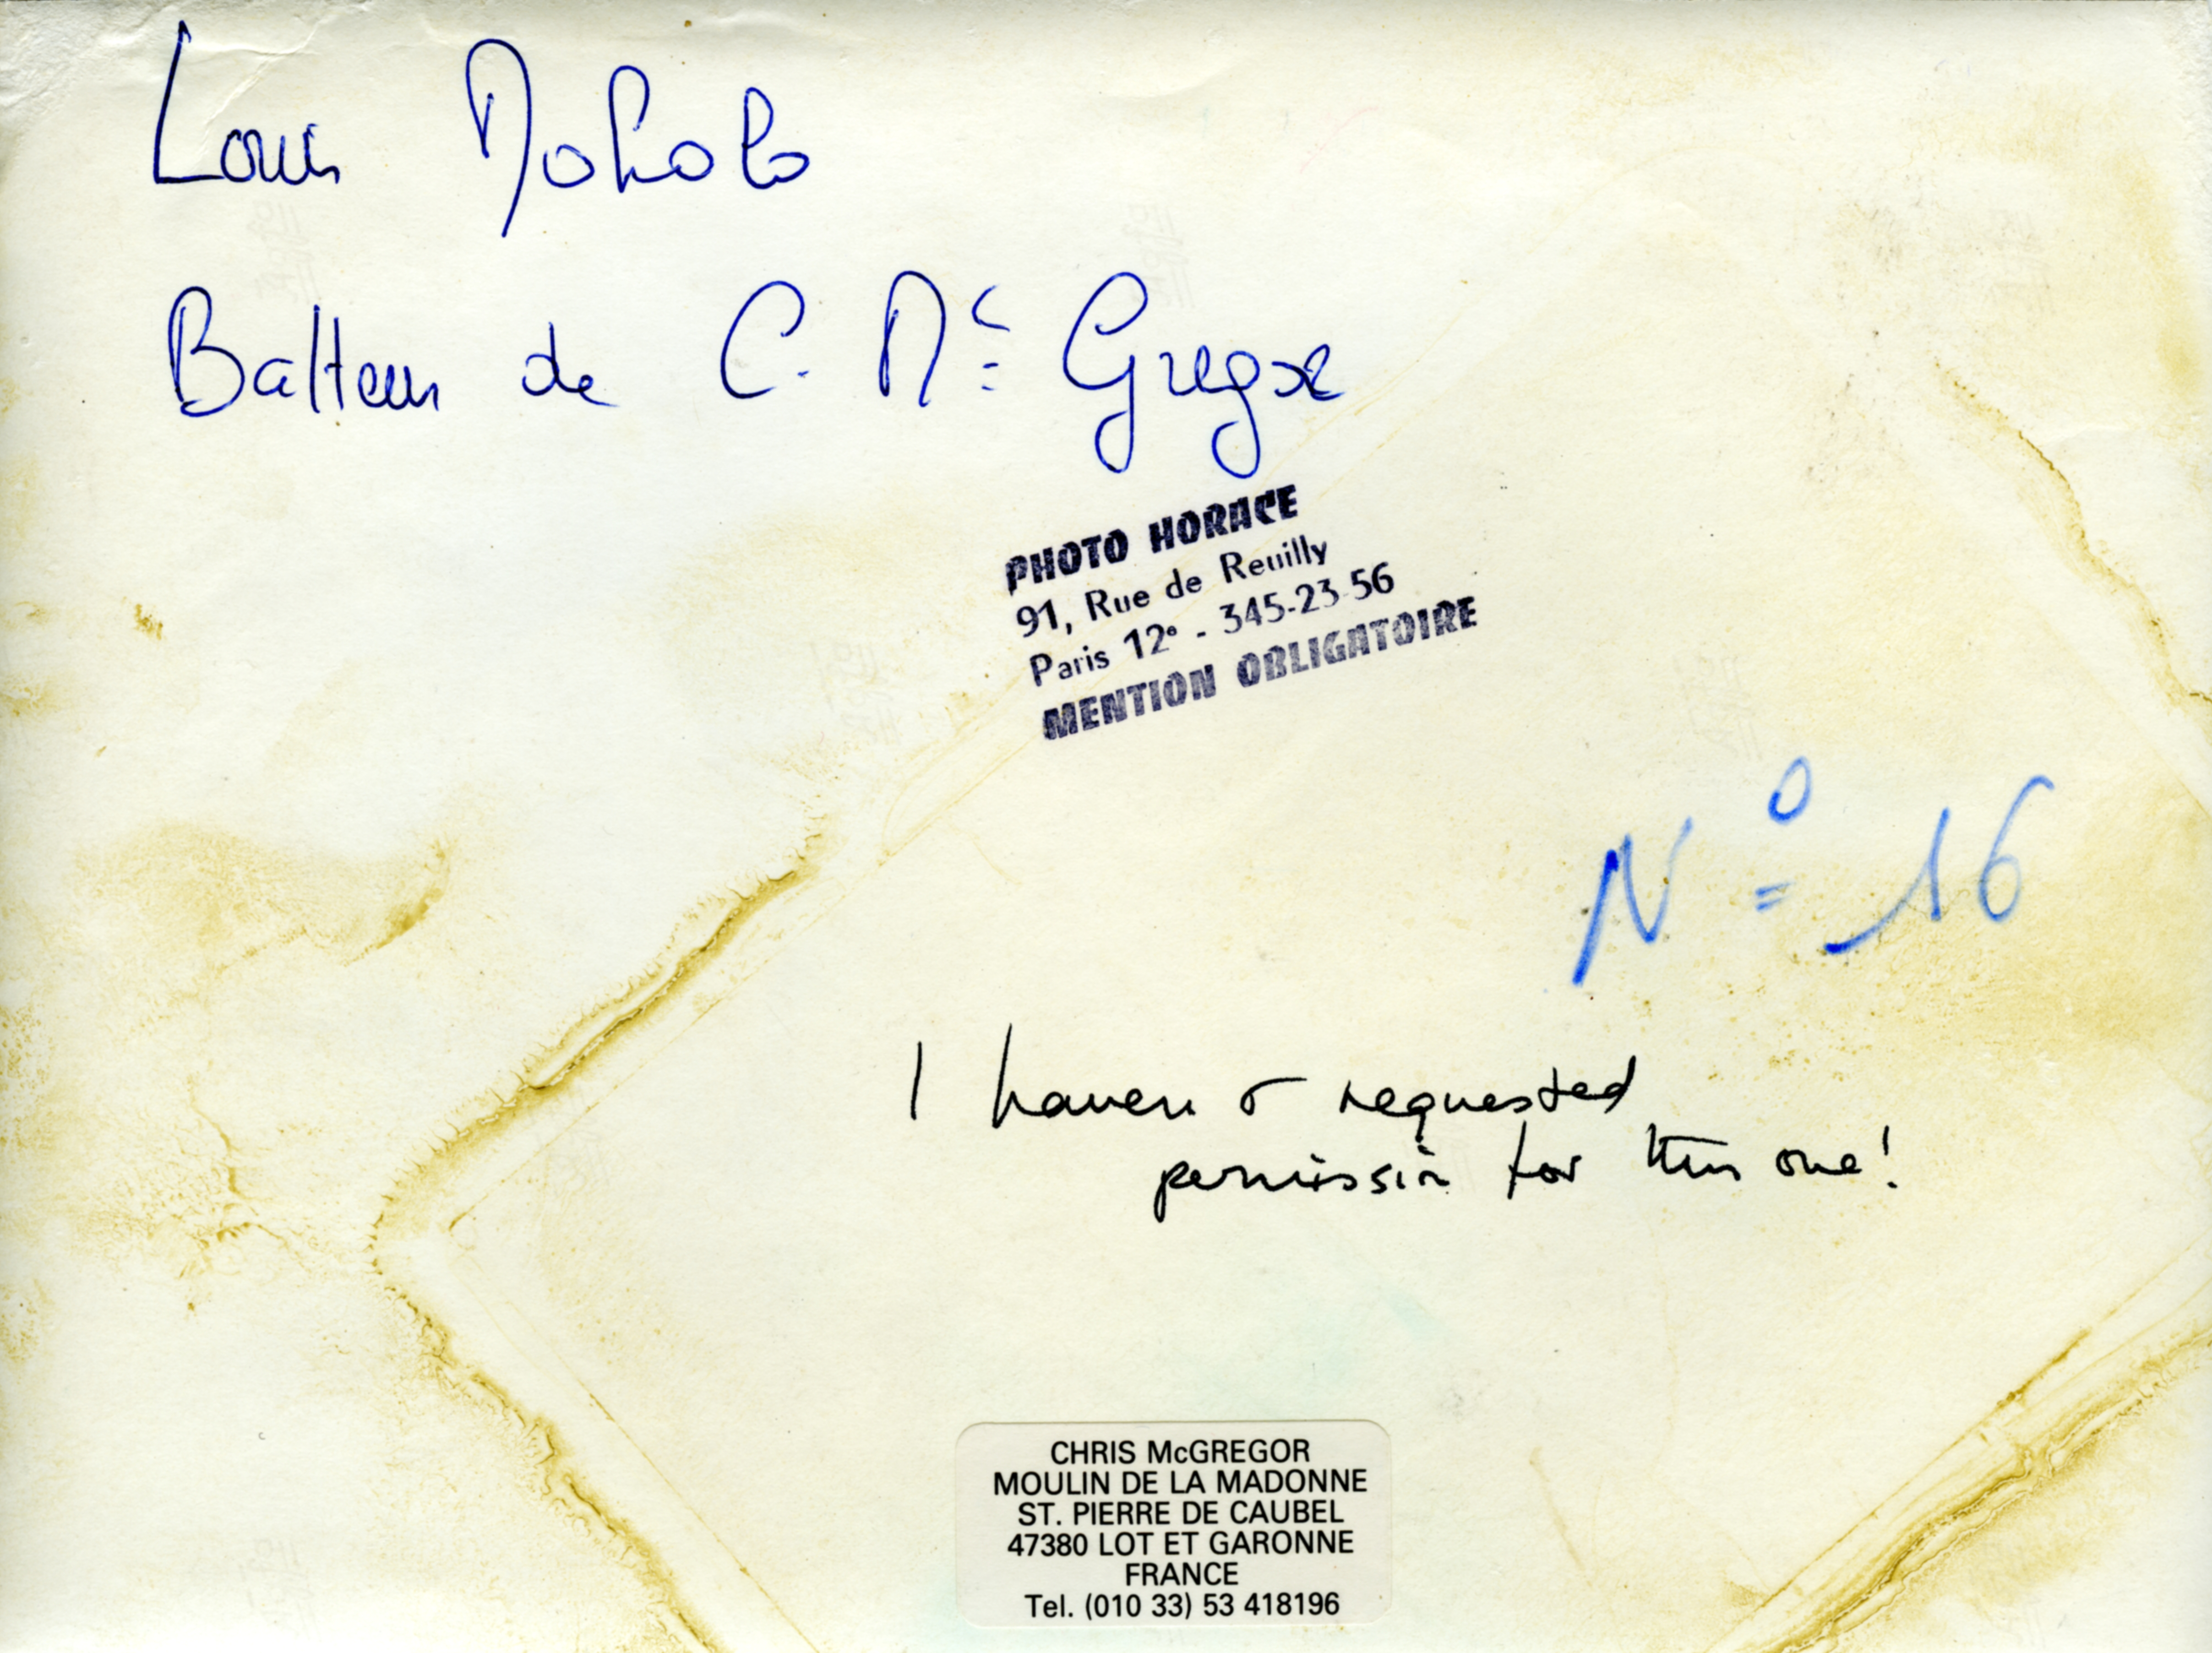 Louis Moholo
Batteur de C. Mc Gregor
PHOTO HORACE
91, Rue de Reuilly
Paris 12e - 345-23-56
MENTION OBLIGATOIRE
No 16
I haven't requested
permission for this one!
CHRIS McGREGOR
MOULIN DE LA MADONNE
ST. PIERRE DE CAUBEL
47380 LOT ET GARONNE
FRANCE
Tel. (010 33) 53 418196